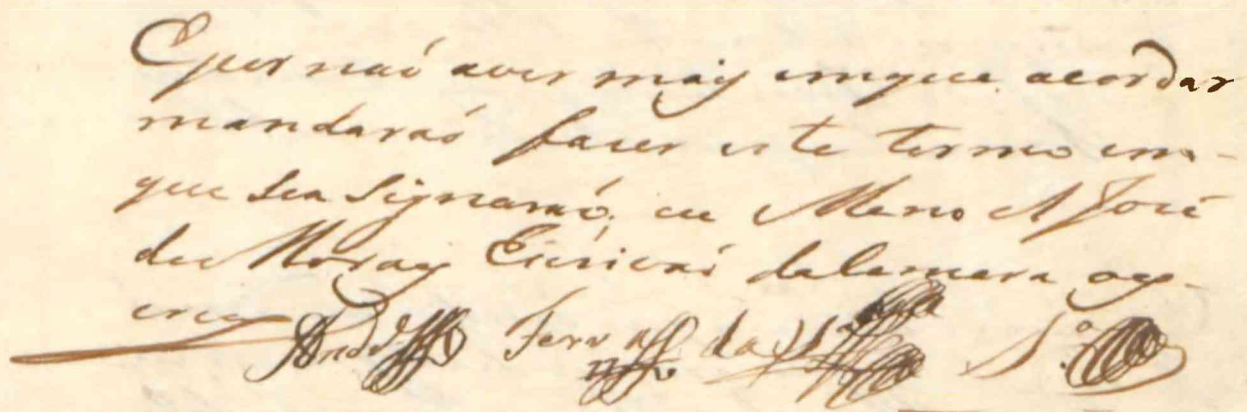 E por naõ aver mais emque acordar
mandaraõ fazer este termo em-
que seasignaraõ, eu Mano José
de Moraes Escrivaõ daCamera oes-
crevy
Andde Ferz da Sa Sa